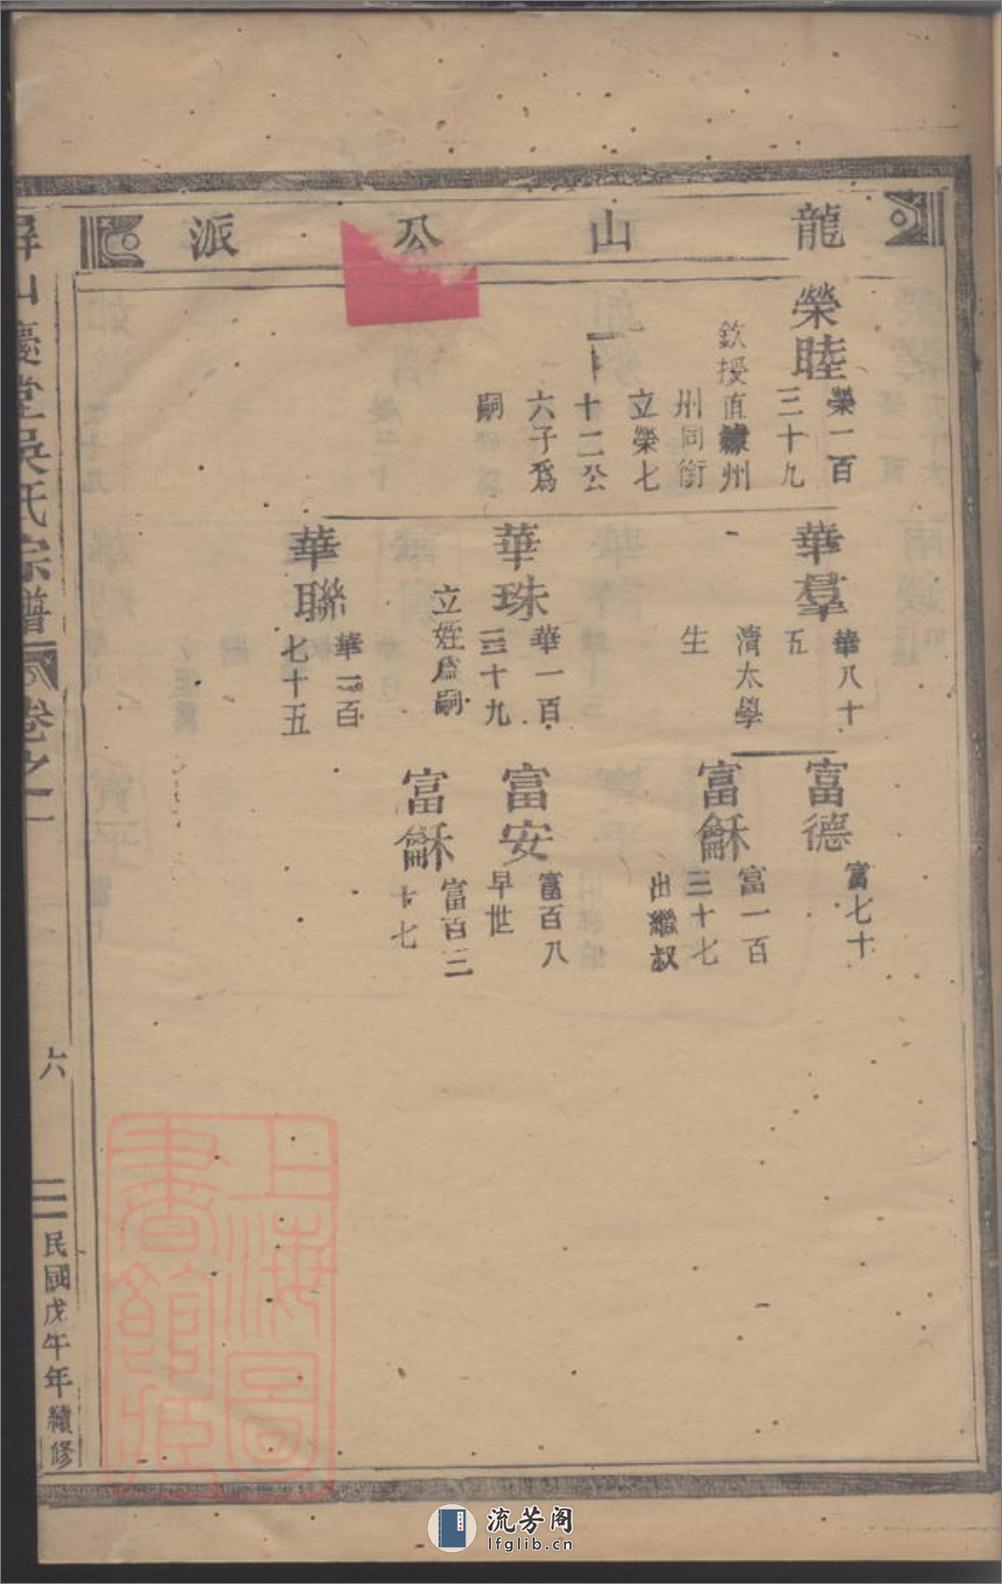 龍山公派
榮睦
榮一百
三十九
欽授直隸州
州同銜
立榮七
十二公
六子爲
嗣
華羣
華八十
五
清太學
生
華珠
華一百
三十九
立姪爲嗣
華聯
華一百
七十五
富德
富七十
富龢
富一百
三十七
出繼叔
富安
富百八
早世
富龢
富百三
十七
屏山慶堂吳氏宗譜
卷之一
六
民國戊午年續修
上海圖書館藏
流芳阁
lfglib.cn